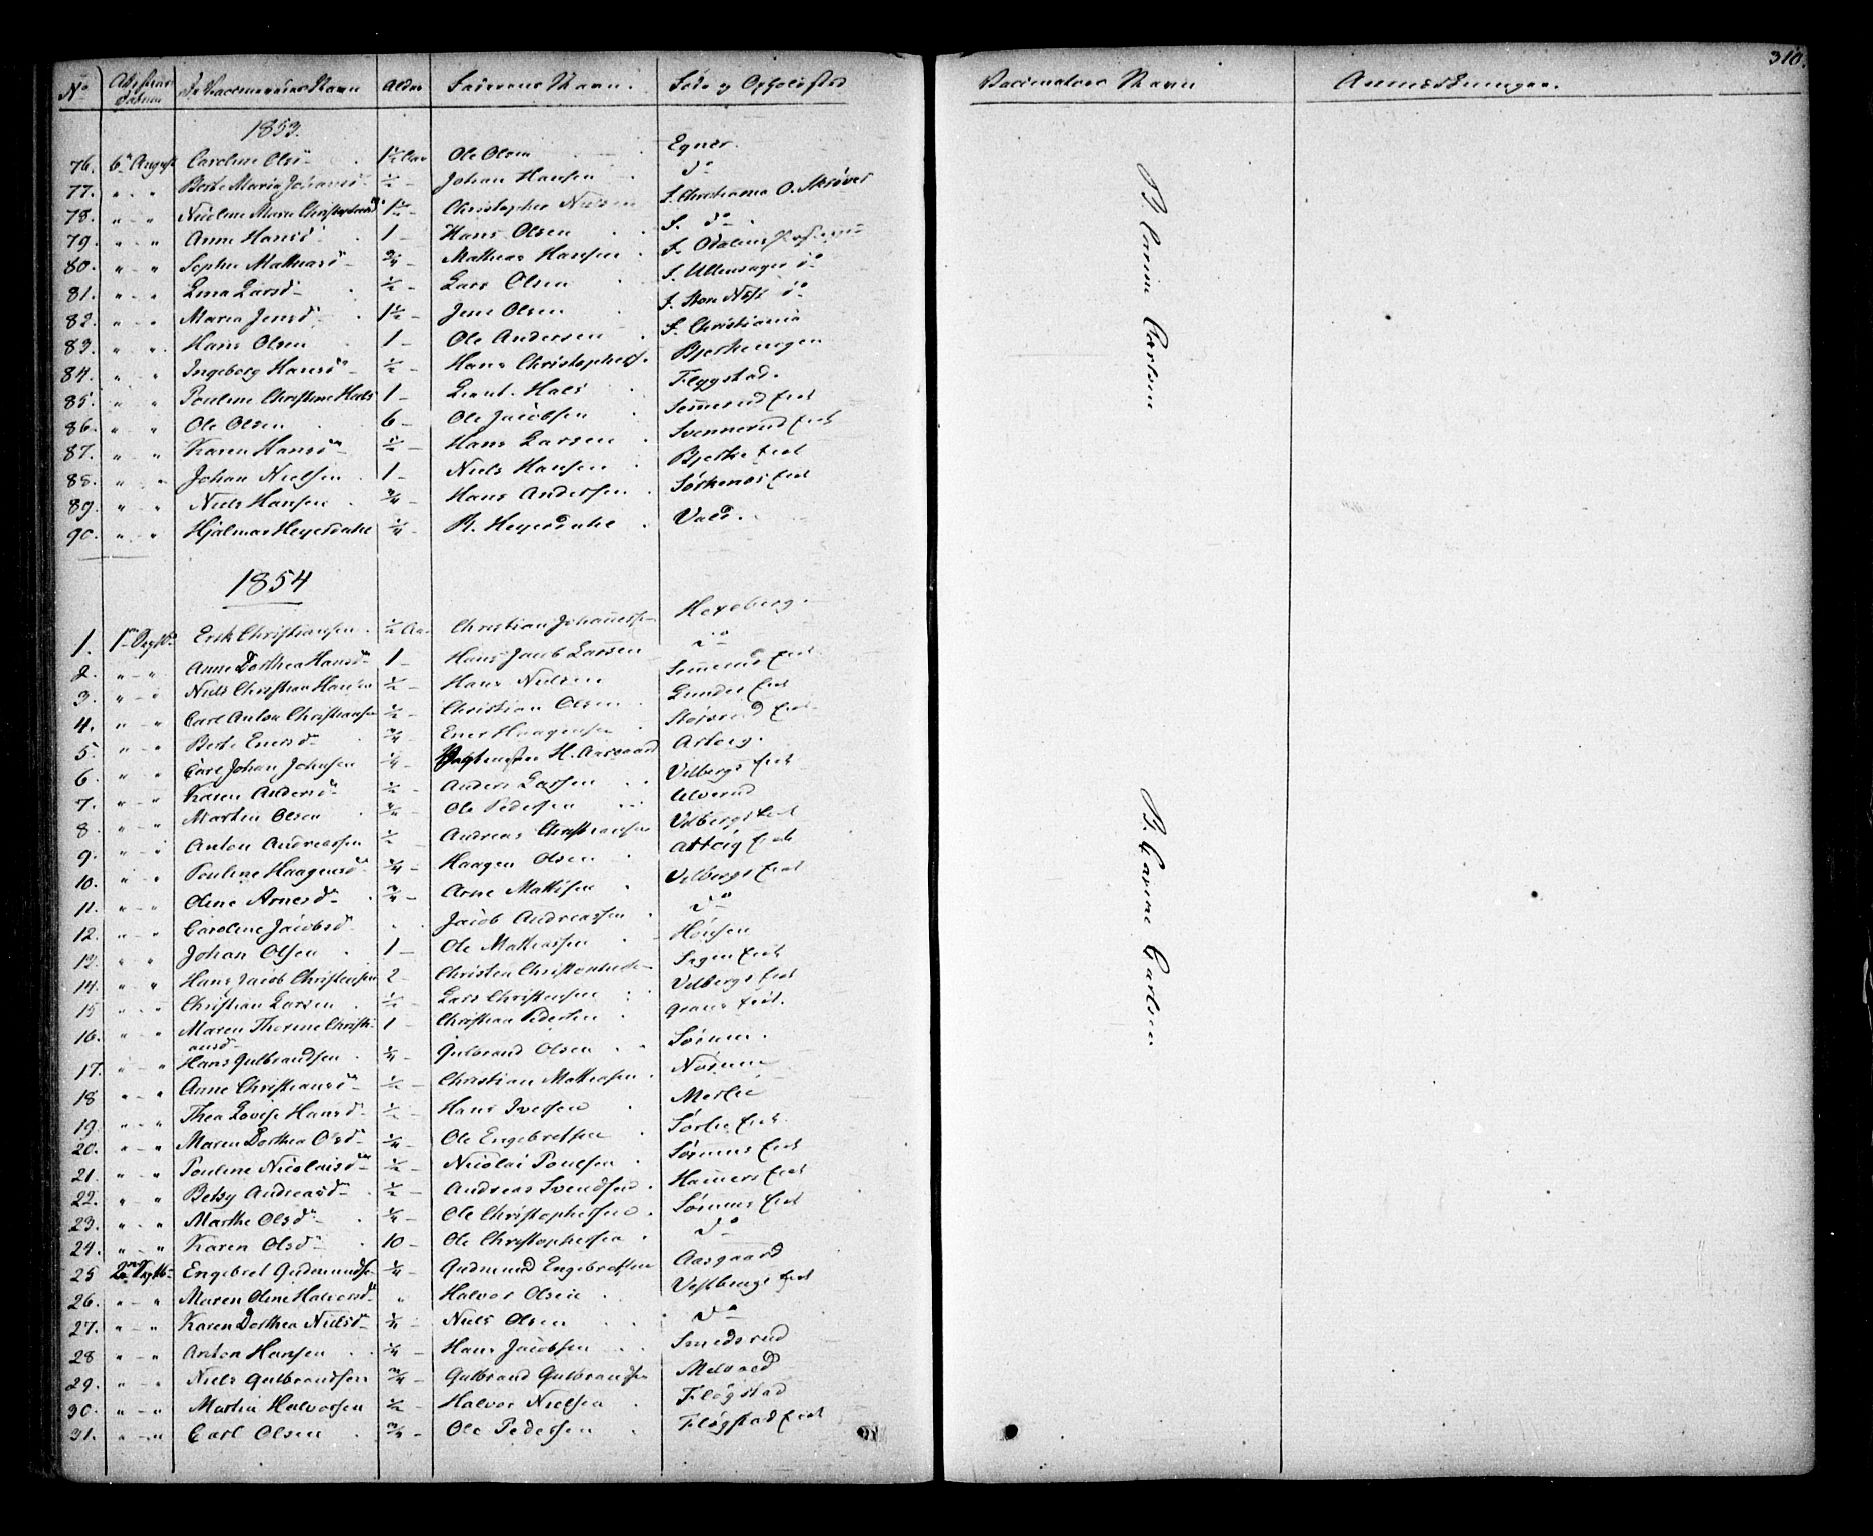 310.
No Attestens Datum De Vaccineredes Navn Alder Faderens Navn. Føde og Opholdsted Vaccinateur Navn Anmærkninger.
1853.
76. 6te August Caroline Olsdr 1½ Aar Ole Olsen Egner.
77. " - " Berte Maria Johansdr ½ - Johan Hansen do
78. " - " Nicoline Marie 1½ - Christopher F. Christiania O.
79. " - " Anne Hansdr 1 - Hans Olsen F. do
80. " - " Sophie Mathiasdr ¾ - Mathias Hansen F. Odalen
81. " - " Lina Larsdr ½ - Lars Olsen F. Ullensager do
82. " - " Maria Jensdr 1½ - Jens Olsen F. Store Næss do
83. " - " Hans Olsen 1 - Ole Andersen F. Christiania
84. " - " Ingeborg Hansdr ½ - Hans Christophers. Bjerkeengen
85. " - " Pouline Christine Hals 1 - Lieut. Hals Flygstad.
86. " - " Ole Olsen 6 - Ole Jacobsen Semmerud Eiet
87. " - " Karen Hansdr ½ - Hans Larsen Svennerud Eiet
88. " - " Johan Nielsen 1 - Niels Hansen Bjerke Eiet
89. " - " Niels Hansen ¾ - Hans Andersen Eiet
90. " - " Hjalmar Heyerdahl ¼ - H. Heyerdahl Vald.
B. Carine Carlsen
1854
1. 1ste Erik Christiansen ½ Aar Christian Johannessen Hexeberg.
2. " - " Anne Dorthea Hansdr 1 - Hans Jacob Larsen do
3. " - " Niels Christian Hansen ½ - Hans Nielsen Semmerud Eiet
4. " - " Carl Anton Christiansen ½ - Christian Olsen Gunder Eiet
5. " - " Berte Enersdr ¾ - Ener Haagensen Eiet
6. " - " Carl Johan Johnsen ¼ - H. Aasgaard Atterg.
7. " - " Karen Andersdr ½ - Anders Larsen Vilbergs Eiet
8. " - " Martin Olsen ¾ - Ole Pedersen Ulverud
9. " - " Anton Andreassen ½ Andreas Christiansen Vilbergs Eiet
10. " - " Pouline Haagensdr ¼ - Haagen Olsen Eiet
11. " - " Oline Arnesdr ¾ - Arne Mathisen Vilbergs Eiet
12. " - " Caroline Jacobsdr Jacob Andreassen do
13. " - " Johan Olsen 1 - Ole Mathiassen Hønsen
14. " - " Hans Jacob Christensen 2 - Christen Eiet
15 " - " Christian Larsen ½ - Lars Christensen Vilbergs Eiet
16. " - " Maren Thorine Christi- 1 - Christian Pedersen Eiet.
ansdr
17. " - " Hans Gulbrandsen ¼ - Gulbrand Olsen Sørum.
18 " - " Anne Christiansdr ½ - Christian Mathiasen Nordum
19. " - " Thea Lovise Hansdr ½ - Hans Iversen Morlie
20. " - " Maren Dorthea Olsdr ¼ - Ole Engebretsen Sørlie Eiet
21. " - " Pouline Nicolaisdr ½ - Nicolai Poulsen Sørums Eiet
22. " - " Betsy Andreasdr ½ - Andreas Svendsen Hamers Eiet
23. " - " Marthe Olsdr ¼ - Ole Christophersen Sørums Eiet
24. " - " Karen Olsdr 10 - Ole Christophersen do
25 2den Engebret Gudmundsen ¼ - Gudmund Engebretsen Aasgaard
26. " - " Maren Oline Halvorsdr " Halvor Olsen Vestbenge Eiet
27. " - " Karen Dorthea Nielsdr ¼ - Niels Olsen do
28 " - " Anton Hansen ¼ - Hans Jacobsen Smedsrud
29. " - " Niels Gulbrandsen ¾ - Gulbrand Gulbrandsen Melvold
30. " - " Martin Halvorsen ½ - Halvor Nielsen Fløgstad
31. " - " Carl Olsen ¾ - Ole Pedersen Fløgstad Eiet
B. Carine Carlsen